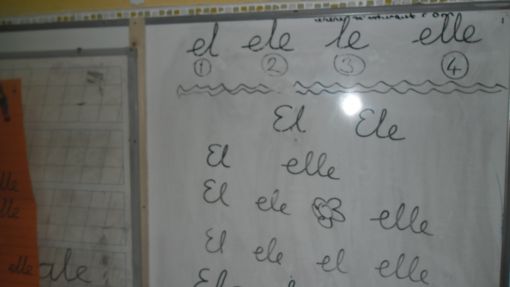 el ele le elle
1 2 3 4
El Ele
El elle
El ele elle
El ele el elle
El
lle
lle
elle ale